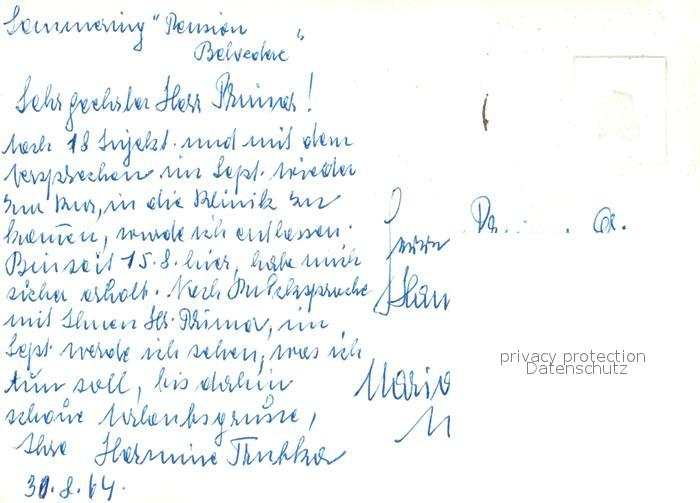 Semmering "Pension
Belvedere"
Sehr geehrter Herr Primar!
Nach 18 Injekt. und mit dem
Versprechen im Sept. wieder
zur Kur, in die Klinik zu
kommen, wurde ich entlassen.
Bin seit 15.8. hier, habe mich
sicher erholt. Nach Rücksprache
mit Ihnen Hr. Primar, im
Sept werde ich sehen, was ich
tun soll, bis dahin
schöne Urlaubsgrüsse,
Ihre Hermine
30.8.64.
Herrn
privacy protection
Datenschutz